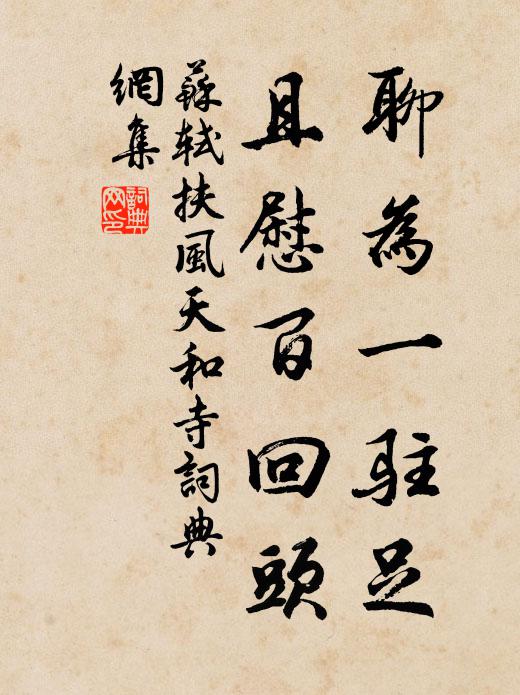 聊為一駐足
且慰百回頭
蘇軾扶風天和寺詞典
網集
詞典
网印